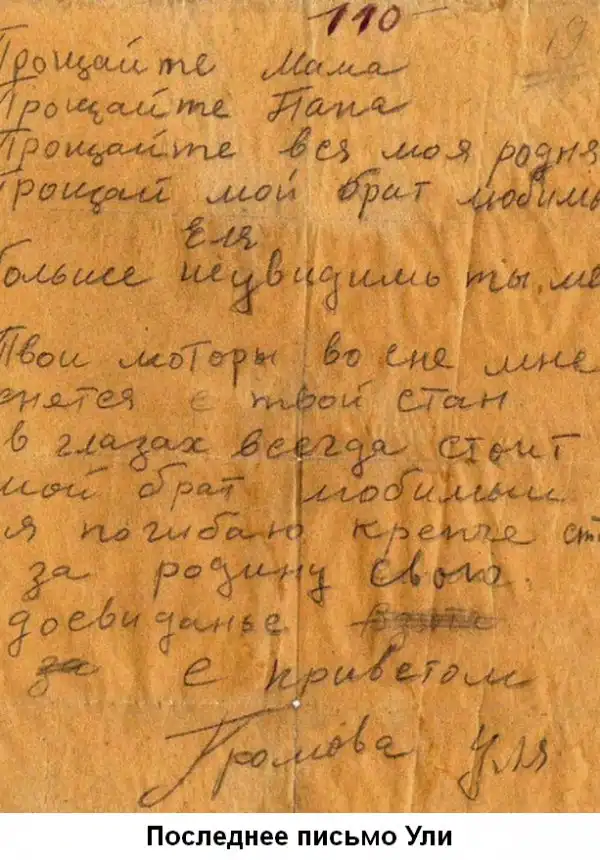 110
19
Прощайте Мама
Прощайте Папа
Прощайте вся моя родня
Прощай мой брат любимы
Еля
больше неувидишь ты ме
Твои моторы во сне мне
снятся с твой стан
в глазах всегда стоит
мой брат любимыи
я погибаю крепче ст
за родину свою.
досвиданье
за с приветом
Громова Уля
Последнее письмо Ули